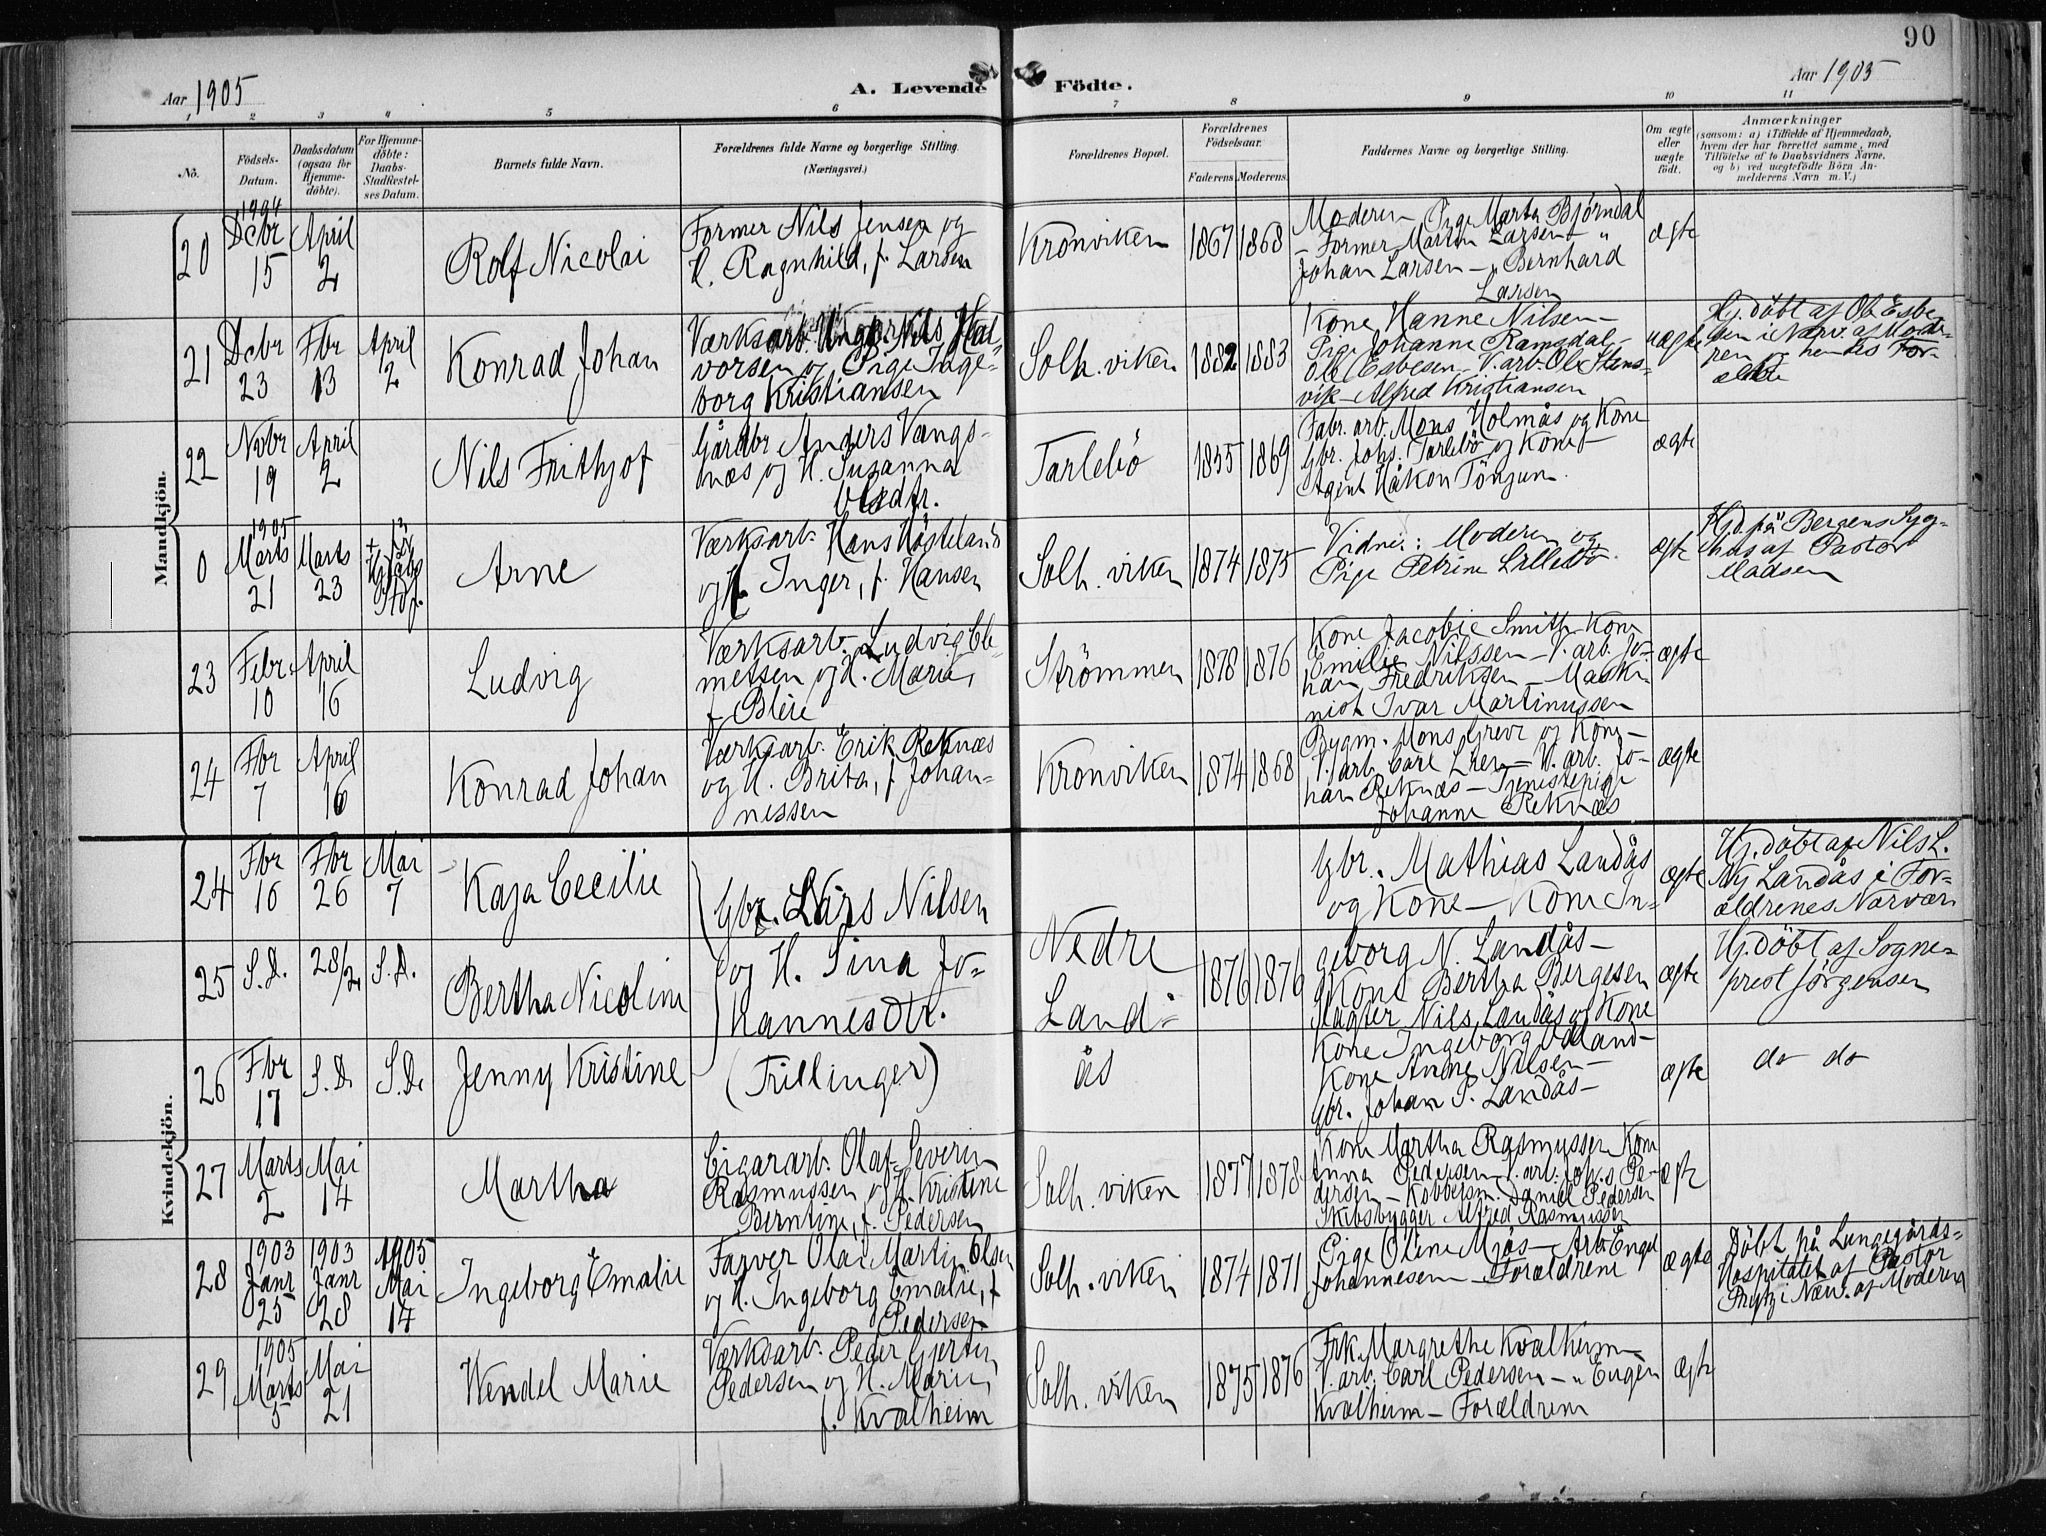 90
Aar 1905
A. Levende Födte.
Aar 1905
1 2 3 4 5 6 7 8 9 10 11
Nô.
Födsels-Datum.
Daabsdatum (ogsaa for Hjemme-döbte).
For Hjemme-döbte: Daabs-Stadfæstel-ses Datum.
Barnets fulde Navn.
Forældrenes fulde Navne og borgerlige Stilling. (Næringsvei.)
Forældrenes Bopæl.
Forældrenes Födselsaar.
Faderens. Moderens.
Faddernes Navne og borgerlige Stilling.
Om ægte eller uægte födt.
Anmærkninger
(saasom: a) i Tilfælde af Hjemmedaab,
hvem der har forrettet samme, med
Tilföielse af to Daabsvidners Navne,
og b) ved uægtefödte Börn An-
melderens Navn m. V.)
Mandkjön.
20
Dcbr 15
April 2
Rolf Nicolai
Former Nils Jensen og
H. Ragnhild, f. Larsen
Kronviken
1867 1868
Moderen – Pige Marta Bjørndal
– Former Martin Larsen – "
Johan Larsen – " Bernhard
Larsen
ægte
21
Dcbr 23
Fbr 13
April 2
Konrad Johan
Værksarb. Ungk. Nils Hal-
vorsen og Pige Inge-
borg Kristiansen
Solh. viken
1882 1883
Kone Hanne Nilsen –
Pige Johanne Ramsdal –
Ole Esbesen – V. arb. Ole Stens-
vik – Alfred Kristiansen
uægte
Hj. döbt af Ole Esbe-
sen i Nærv. af Mode-
ren og hendes For-
ældre
22
Novbr 19
April 2
Nils Frithjof
Gårdbr Anders Vangs-
næs og H. Susanna
Olsdtr.
Tarlebö
1855 1869
Fabr. arb. Mons Holmås og Kone
Gbr. Johs. Tarlebö og Kone
Agent Håkon Tönjum.
ægte
0
1905
Marts 21
Marts 23
Arne
Værksarb. Hans Höteland
og H. Inger, f. Hansen
Solh. viken
1874 1875
Vidner: Moderen og
Pige Petrine Lillebö.
ægte
Hjd. på Bergens Syg-
hus af Pastor
Madsen
23
Febr. 10
April 16
Ludvig
Værksarb. Ludvig Cle-
metsen og H. Marie,
f. Bleie
Strömmen
1878 1876
Kone Jacobie Smith – Kone
Emilie Nilssen – V. arb. Jo-
han Fredriksen – Maski-
nist Ivar Martinussen
ægte
24
Fbr 7
April 16
Konrad Johan
Værksarb. Erik Reknæs
og H. Brita, f. Johan-
nissen
Kronviken
1874 1868
Bygm. Mons Greve og Kone –
V. arb. Carl Lien – V. arb. Jo-
han Reknæs – Tjenestepige
Johanne Reknæs
ægte
Kvindekjön.
24
Fbr 16
Fbr 26
Mai 7
Kaja Cecilie
Gbr. Lars Nilsen
og H. Sina Jo-
hannesdtr.
(Trillinger)
Nedre
Land-
ås
1876 1876
Gbr. Mathias Landås
og Kone – Kone In-
geborg N. Landås –
ægte
Hj. döbt af Nils L.
Landås i For-
ældrenes Nærvær.
25
S.D.
28/2
S.D.
Bertha Nicoline
Kone Bertha Bergesen
Slagter Nils Landås og Kone
ægte
Hj. döbt af Sogne-
prest Jörgensen
26
Fbr 17
S.D.
S.D.
Jenny Kristine
Kone Ingeborg Ödland –
Kone Anne Nilsen –
Gbr. Johan P. Landås –
ægte
do do
27
Marts 2
Mai 14
Martha
Cigararb. Olaf Severin
Rasmussen og H. Kristine
Berntine, f. Pedersen
Solh. viken
1877 1878
Kone Martha Rasmussen Kone
Anna Pedersen – V. arb. Johs Pe-
dersen – Kobbersm. Daniel Pedersen
Skibsbygger Alfred Rasmussen
ægte
28
1903 Janr 25
1903 Janr 28
1905 Mai 14
Ingeborg Emalie
Farver Olai Martin Olsen
og H. Ingeborg Emalie, f.
Pedersen
Solh. viken
1874 1871
Pige Oline Mjös – Arb. Engel
Johannesen – Forældrene
ægte
Döbt på Lungegårds-
Hospitalet af Pastor
i Nærv. af Moderen
29
1905
Marts 5
Mai 21
Wendel Marie
Værksarb. Peder Gjertin
Pedersen og H. Marie,
f. Kvalheim
Solh. viken
1875 1876
Frk. Margrethe Kvalheim –
V. arb. Carl Pedersen – " Eugen
Kvalheim – Forældrene
ægte